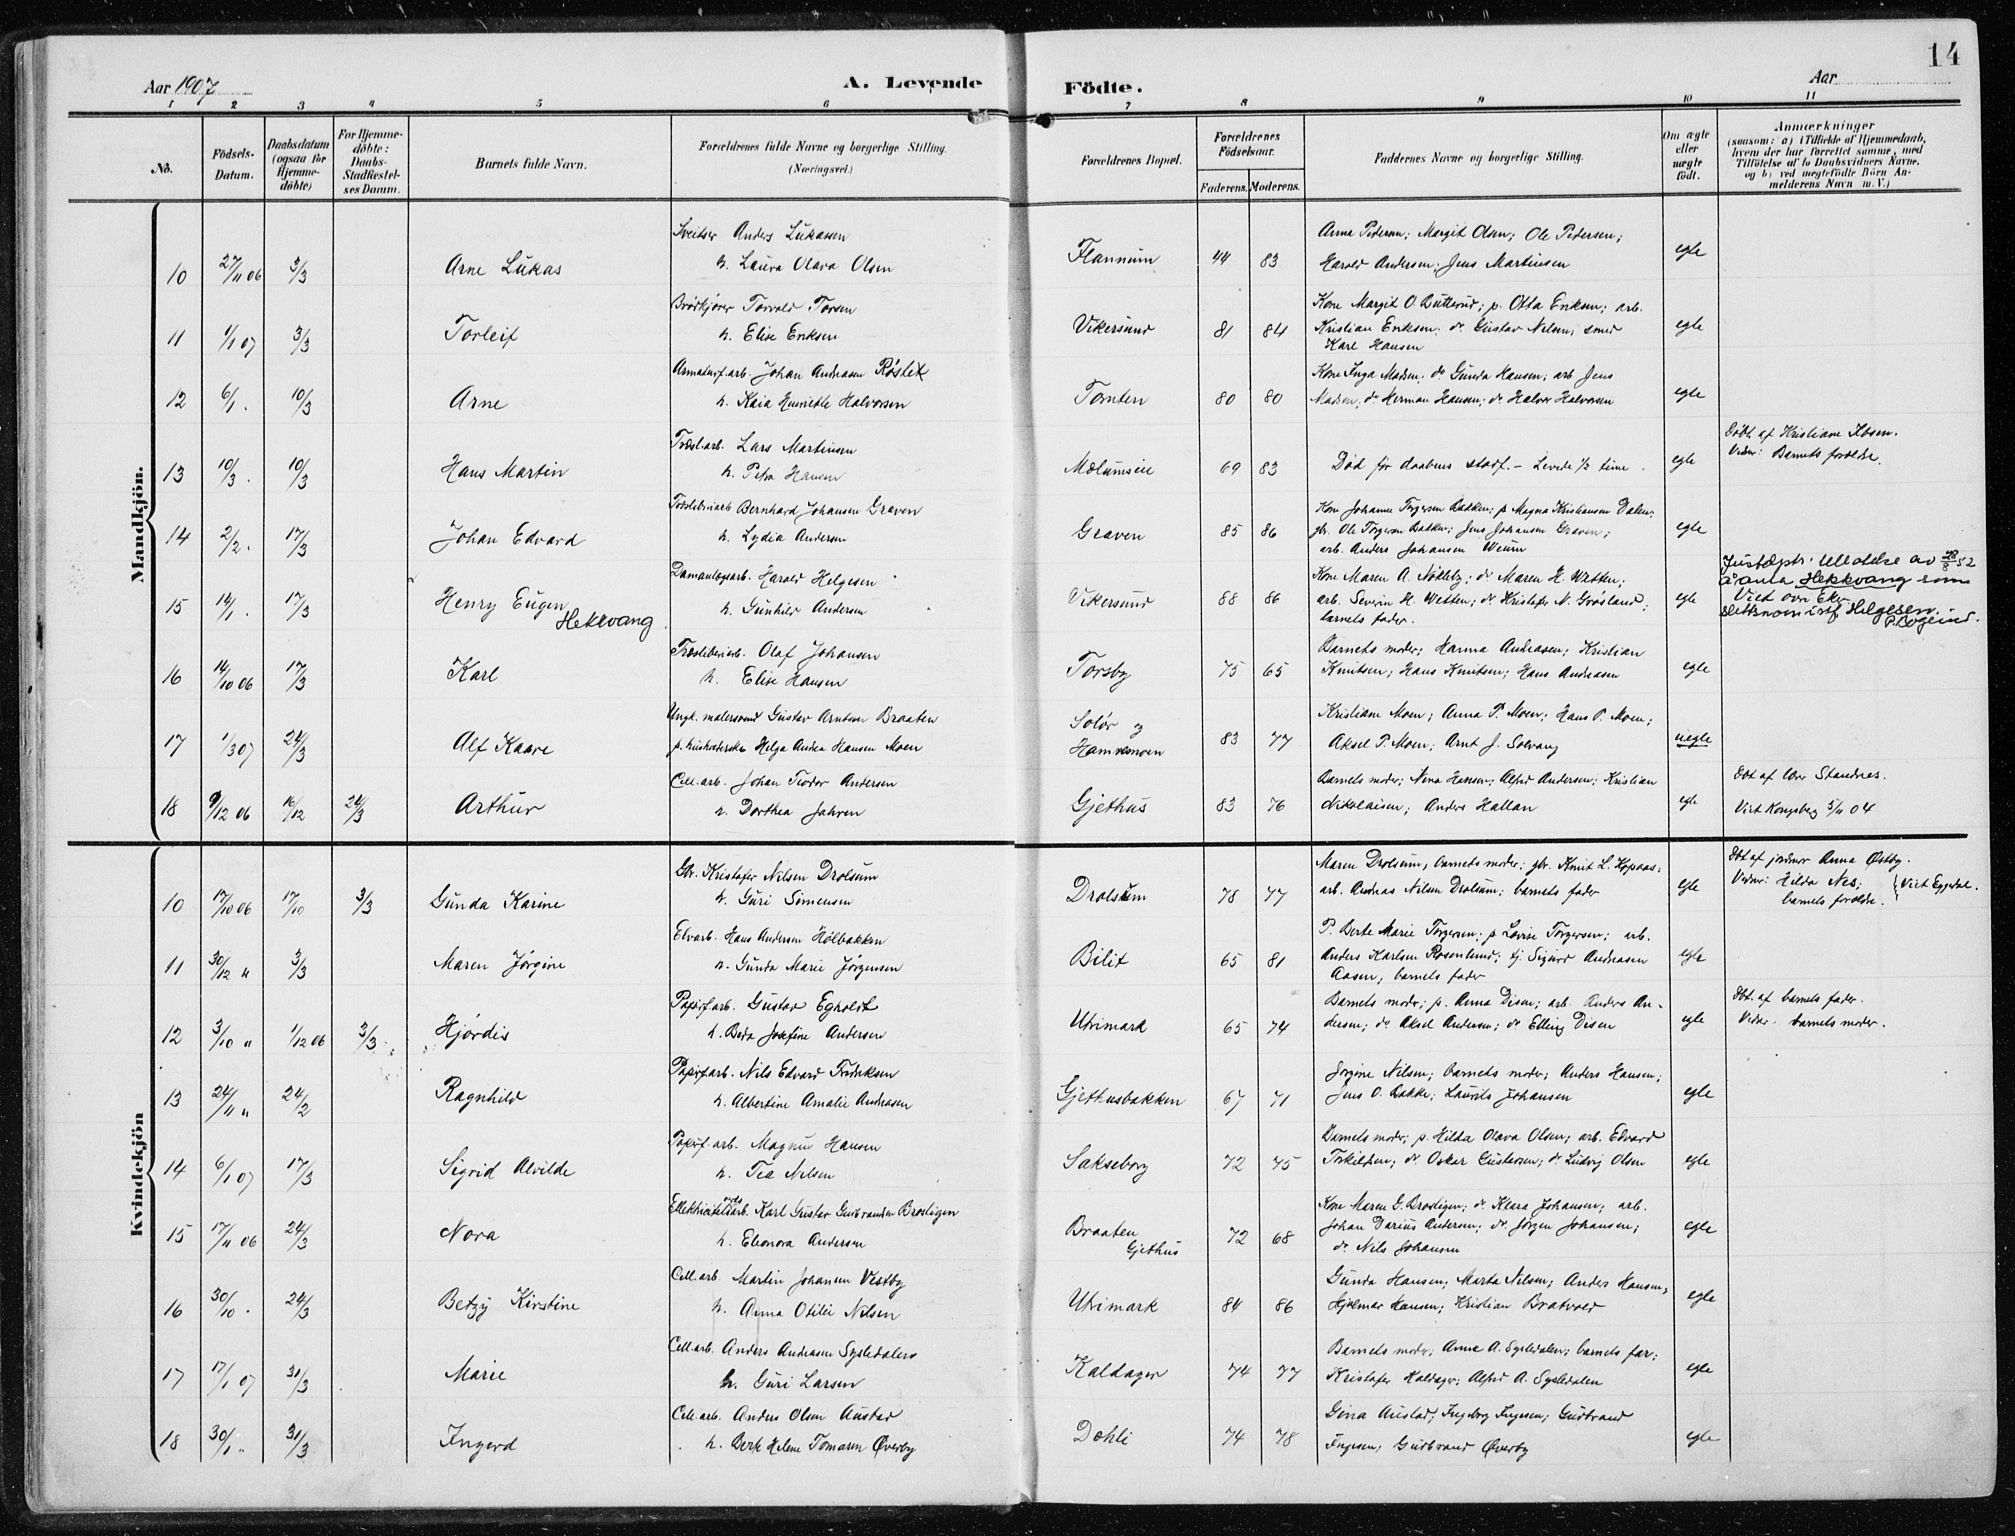 14
Aar 1907
A. Levende
Födte.
Aar
1 2 3 4 5 6 7 8 9 10 11
No.
Födsels-
Datum.
Daabsdatum
(ogsaa for
Hjemme-
döbte)
For Hjemme-
döbte:
Daabs-
Stadfæstel-
ses Datum.
Barnets fulde Navn.
Forældrenes fulde Navne og borgerlige Stilling.
(Næringsvei.)
Forældrenes Bopæl.
Forældrenes
Födselsaar.
Faderens. Moderens.
Faddernes Navne og borgerlige Stilling.
Om ægte
eller
uægte
födt.
Anmærkninger
(saasom: a) i Tilfælde af Hjemmedaab,
hvem der har forrettet samme, med
Tilföielse af to Daabsvidners Navne.
og b) ved uægtefödte Börn An-
melderens Navn m. V.)
Mandkjön.
Sveitser Anders Lukassen
Anna Pedersen; Margit Olsen; Ole Pedersen;
10 27/11 06 3/3 Arne Lukas h. Laura Olava Olsen Flannum 44 83 Harald Andersen; Jens Martinsen egte
Brødkjører Torvald Torsen
Kone Margit O. Butterud; p. Otta Eriksen; arb.
11 1/1 07 3/3 Torleif h. Elise Eriksen Vikersund 81 84 Kristian Eriksen; do Gustav Nilsen; smed egte
Karl Hansen
Armaturf.arb. Johan Andreasen Røslet
Kone Inga Madsen; do Gunda Hansen; arb Jens
12 6/1 . 10/3 Arne h. Kaia Henriette Halvorsen Tomten 80 80 Madsen; do Herman Hansen; do Halvor Halvorsen egte
Træsl.arb. Lars Martinsen
Døbt af Kristiane Ibsen.
13 10/3 . 10/3 Hans Martin h. Petra Hansen Mælumseie 69 83 Død før daabens stadf. - Levede 1/2 time. egte Vidner: Barnets forældre.
Træsliberiarb Bernhard Johansen Graven
Kone Johanne Torgersen Bakken; p Magna Kristiansen Dalen;
14 2/2 . 17/3 Johan Edvard h. Lydia Andersen Graven 85 86 gbr. Ole Torgersen Bakken; Jens Johansen Graven; egte
arb. Anders Johansen Weum
Damanlægsarb. Harald Helgesen
Kone Maren A. Nøkleby; do Maren H. Wetten;
15 14/1 . 17/3 Henry Eugen Hekkvang h. Gunhild Andersen Vikersund 88 86 arb. Severin H. Wetten; do Kristofer N. Grøsland; egte
barnets fader.
Justdepts. tillatelse av 28/8 52
å anta Hekkvang som
slektsnavn istf. Helgesen.
Træsliberiarb. Olaf Johansen
Barnets moder; Hanna Andreasen; Kristian
16 14/10 06 17/3 Karl h. Elise Hansen Torsby 75 65 Knutsen; Hans Knutsen; Hans Andreasen egte
Ungk. malersvend Gustav Arntsen Braaten
Solør og
Kristiane Moen; Anna P. Moen; Hans P. Moen;
17 1/3 07 24/3 Alf Kaare p. Helga Andrea Hansen Moen Hamremoen 83 77 Aksel P. Moen; Arnt J. Solvang uegte
Cell.arb. Johan Teodor Andersen
Barnets moder; Nina Hansen; Alfred Andersen; Kristian
18 9/12 06 16/12 24/3 Arthur h. Dorthea Jahren Gjethus 83 76 Nikolaisen; Anders Hallan egte Viet Kongsberg 5/11 04
Kvindekjön
Gbr. Kristofer Nilsen Drolsum
Maren Drolsum; barnets moder; gbr. Knut L. Kopaas;
Døbt af jordmor Anna Østby.
10 17/10 06 17/10 3/3 Gunda Karine h. Guri Simensen Drolsum 78 77 arb. Andreas Nilsen Drolsum; barnets fader egte Vidner: Hilda Nes; barnets forældre. Viet Eggedal.
Elvarb. Hans Andersen Hølbakken
P. Berte Marie Torgersen; p Lovise Torgersen; arb.
11 30/12 " 3/3 Maren Jørgine h. Gunda Marie Jørgensen Bilit 65 81 Anders Karlsen Rosenlund; tj. Sigurd Andreasen egte
Aasen; barnets fader
Papirf.arb. Gustav Egholdt
Barnets moder; p. Anna Disen; arb. Anders An-
Døbt af barnets fader.
12 3/10 " 1/12 06 3/3 Hjørdis h. Beda Josefine Andersen Utrimark 65 74 dersen; do Aksel Andersen; do Elling Disen egte Vidner: barnets moder.
Papirf.arb. Nils Edvard Fredriksen
Jørgine Nilsen; barnets moder; Anders Hansen;
13 24/11 " 24/2 Ragnhild h. Albertine Amalie Andreasen Gjethusbakken 67 71 Jens O. Bakke; Laurits Johansen egte
Papirf.arb. Magnus Hansen
Barnets moder; p. Hilda Olava Olsen; arb. Edvard
14 6/1 07 17/3 Sigrid Alvilde h. Tea Nilsen Sakseborg 72 75 Torkildsen; do Oskar Gustavsen; do Ludvig Olsen egte
Karl Gustav Gudbrandsen Brostigen
Kone Maren G. Brostigen; do Klara Johansen; arb.
15 17/11 06 24/3 Nora h. Eleonora Andersen Braaten Gjethus 72 68 Johan Darius Andersen; do Jørgen Johansen; egte
do Nils Johansen
Cell.arb. Martin Johansen Vestby
Gunda Hansen; Marta Nilsen; Anders Hansen;
16 30/10 . 24/3 Betzy Kirstine h. Anna Otilie Nilsen Utrimark 84 86 Hjalmar Hansen; Kristian Bratvold egte
Cell.arb. Anders Andreasen Sysledalen
Barnets moder; Anne A. Sysledalen; barnets far;
17 17/1 07 31/3 Marie h. Guri Larsen Kaldager 74 77 Kristofer Kaldager; Alfred A. Sysledalen egte
Cell.arb. Anders Olsen Austad
Gina Austad; Ingeborg Ingesen; Gudbrand
18 30/1 " 31/3 Ingerd h. Berte Helene Tomasen Øverby Døhli 74 78 Ingesen; Gudbrand Øverby egte